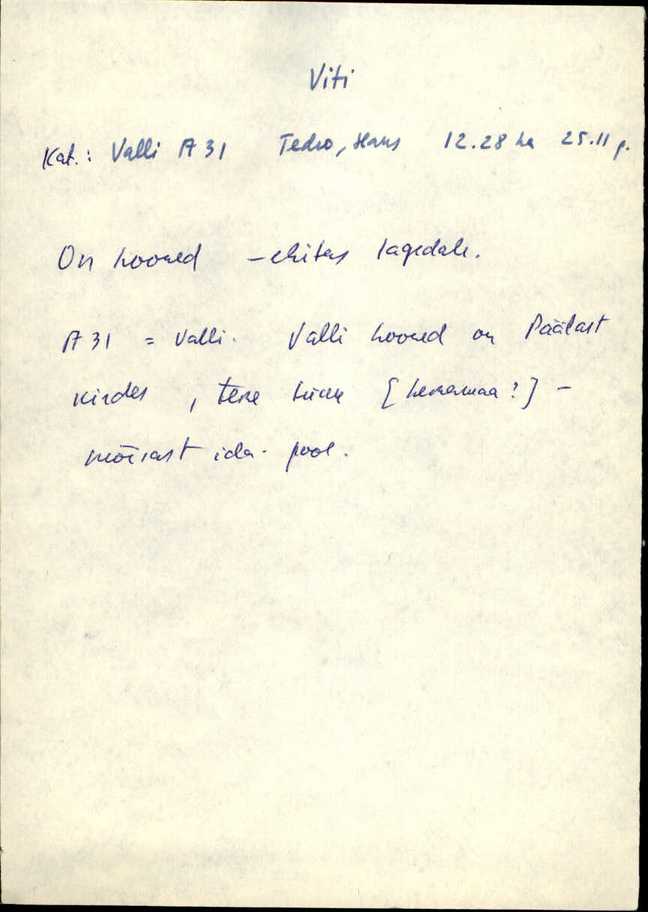 Viti
Kat.: Valli A 31 Tedro, Hans 12.28 ha 25.11 p.
On hooned – ehitas lagedale.
A 31 = Valli. Valli hooned on Päälast
kirdes, teine [heinamaa?] –
mõisast ida-pool.